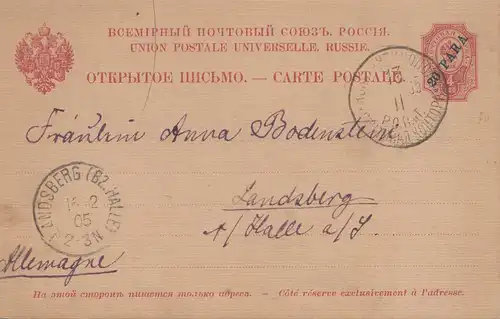 ВСЕМІРНЫЙ ПОЧТОВЫЙ СОЮЗЪ. РОССІЯ.
UNION POSTALE UNIVERSELLE. RUSSIE.
ОТКРЫТОЕ ПИСЬМО. — CARTE POSTALE
20 PARA
Fräulein Anna Bodenstein
LANDSBERG (BZ. HALLE)
2
05
2-3N
Landsberg
A/ Halle a/S.
Allemagne
На этой сторонѣ пишется только адресъ. — Côté réservé exclusivement à l'adresse.